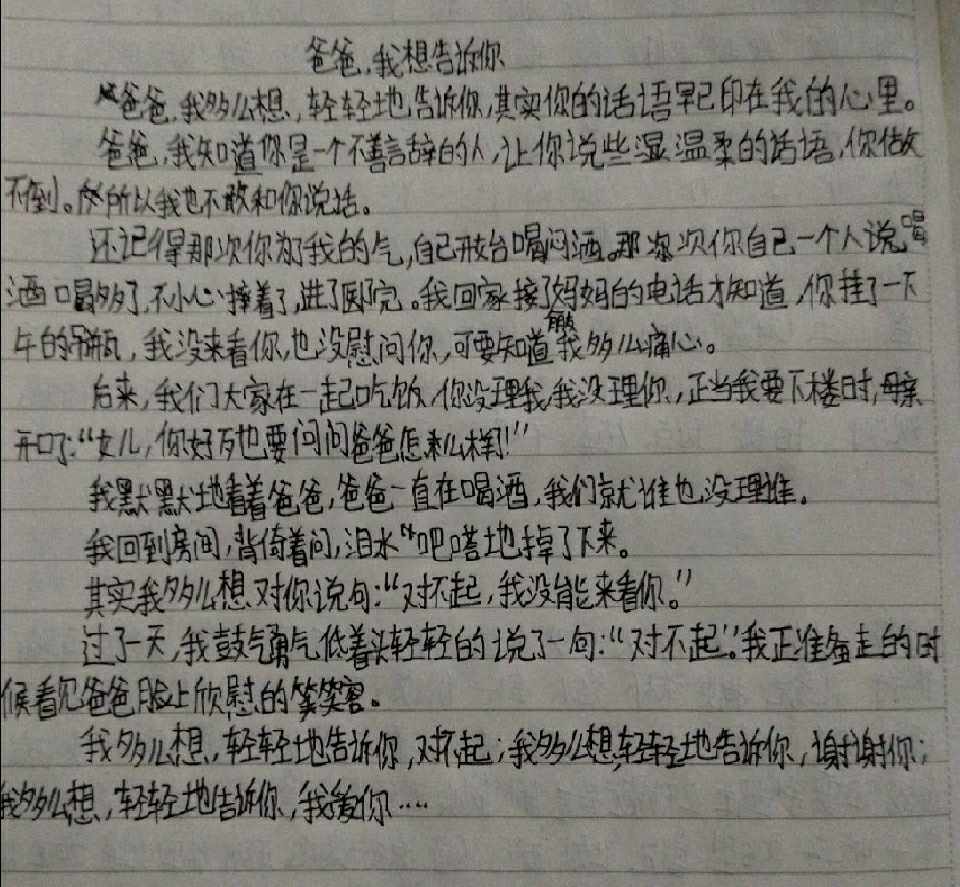 爸爸,我想告诉你
爸爸,我多么想,轻轻地,告诉你,其实你的话语早已印在我的心里。
爸爸,我知道你是一个不善言辞的人,让你说些温柔的话语,你做
不到。所以我也不敢和你说话。
还记得那次你为了我的气,自己开台喝闷酒。那次你自己一个人说喝
酒喝多了,不小心摔着了,进了医院。我回家接了妈妈的电话才知道,你挂了一下
午的吊瓶,我没来看你,也没慰问你,可要知道我多么痛心。
后来,我们大家在一起吃饭,你没理我,我没理你,正当我要下楼时,母亲
开口了:“女儿,你好歹也要问问爸爸怎么样啊!”
我默默地看着爸爸,爸爸一直在喝酒,我们就谁也没理谁。
我回到房间,背倚着问,泪水“吧嗒地掉了下来。
其实我多么想对你说句:“对不起,我没能来看你。”
过了一天,我鼓气勇气低着头轻轻的说了一句:“对不起”。我正准备走的时
候看见爸爸脸上欣慰的笑容。
我多么想,轻轻地告诉你,对不起;我多么想,轻轻地告诉你,谢谢你;
我多么想,轻轻地告诉你,我爱你....